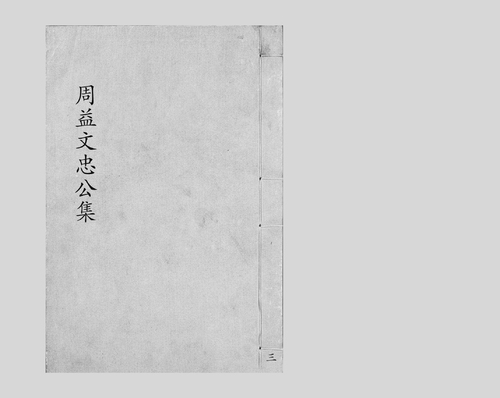 周益文忠公集
三